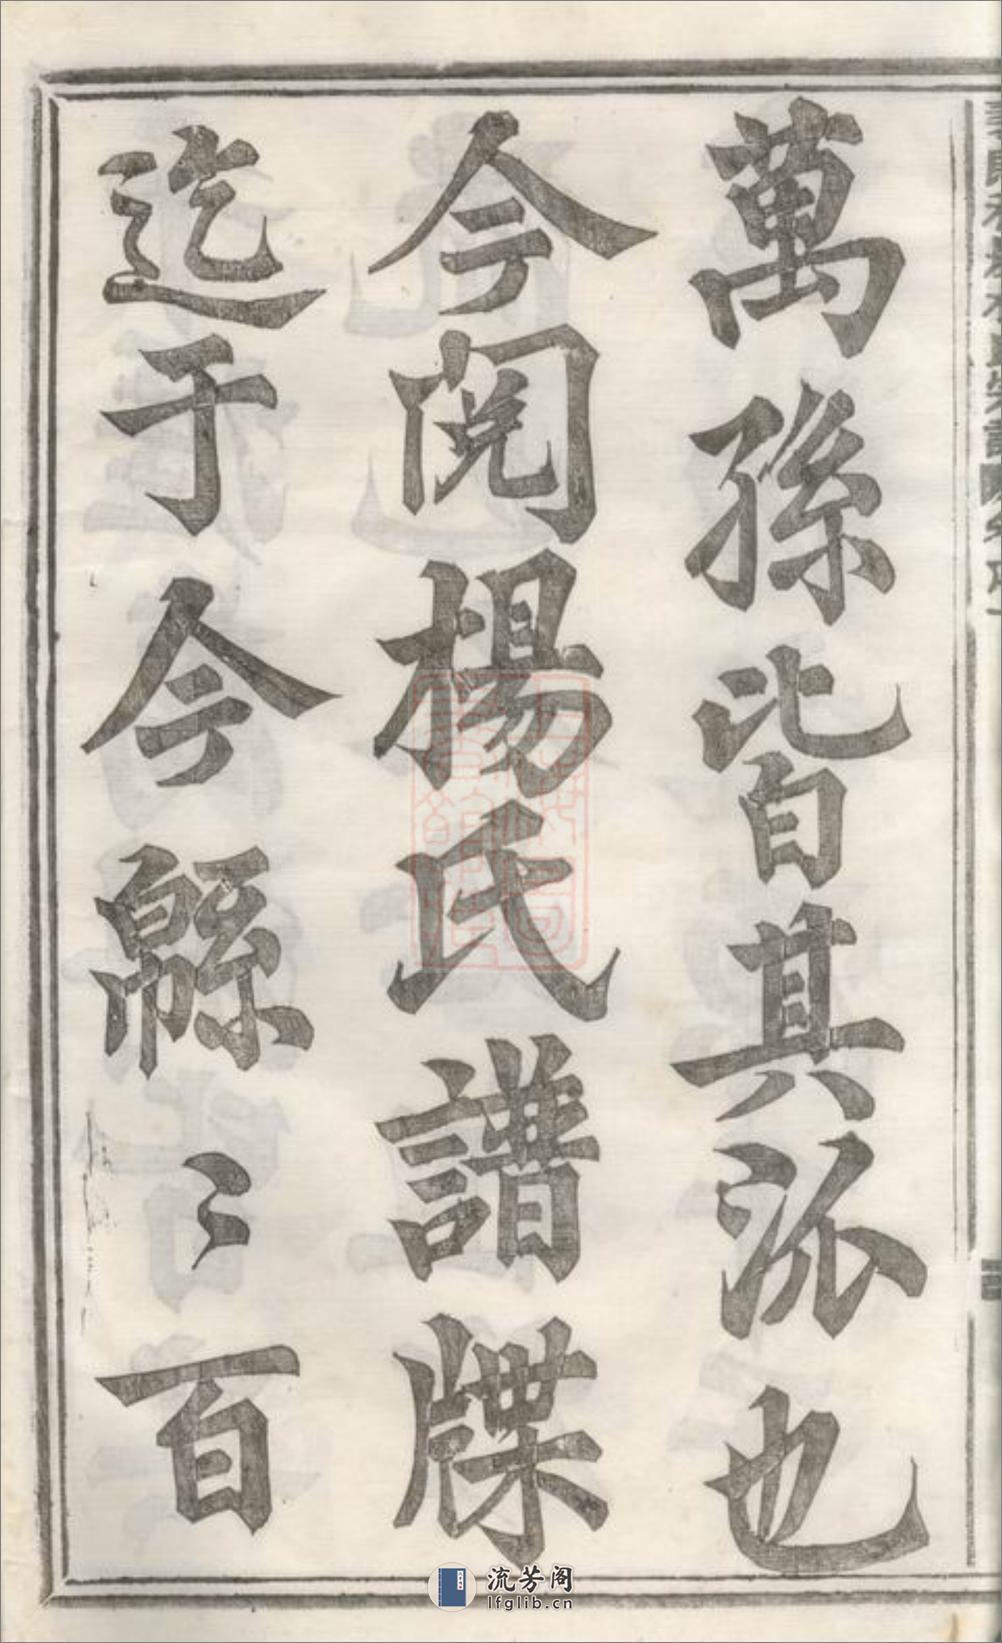 萬孫皆其派也
今閱楊氏譜牒
迄于今緜〻百
流芳阁
lfglib.cn